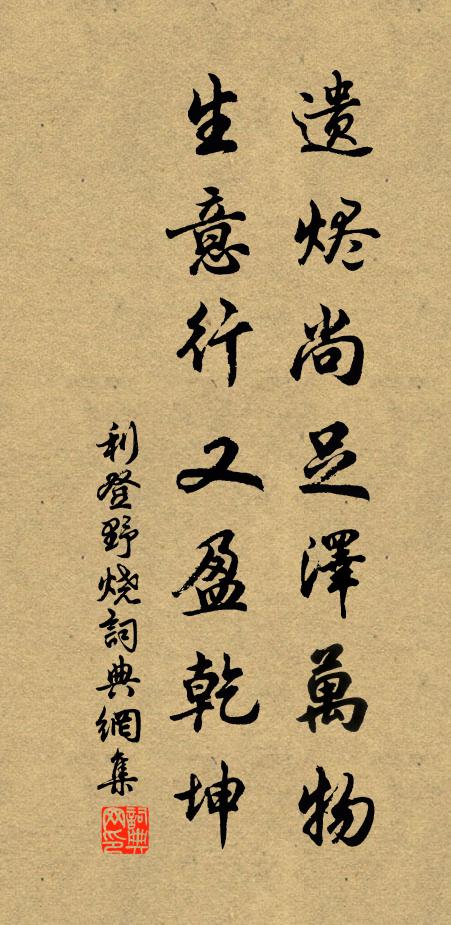 遗烬尚足澤萬物
生意行又盈乾坤
利登野烧詞典網集
詞典网印